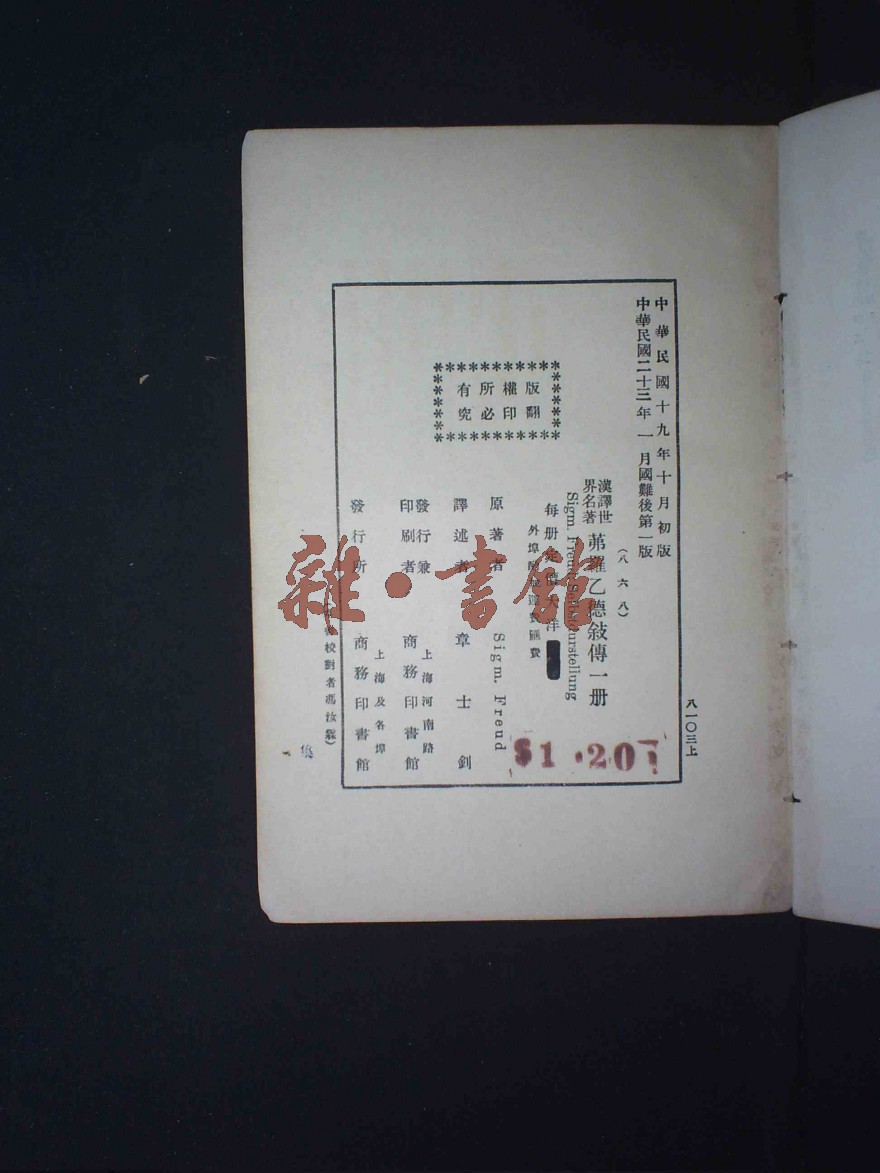 中華民國十九年十月初版
中華民國二十三年一月國難後第一版
(八六八)
漢譯世界名著
茀羅乙德敍傳一册
Sigm. Freud Selbstdarstellung
每册定價大洋
外埠酌加運費匯費
原著者 Sigm. Freud
譯述者 章士釗
發行兼印刷者 上海河南路 商務印書館
發行所 上海及各埠 商務印書館
校對者馮
版權所有
翻印必究
八一〇三上
$1.20
雜·書館